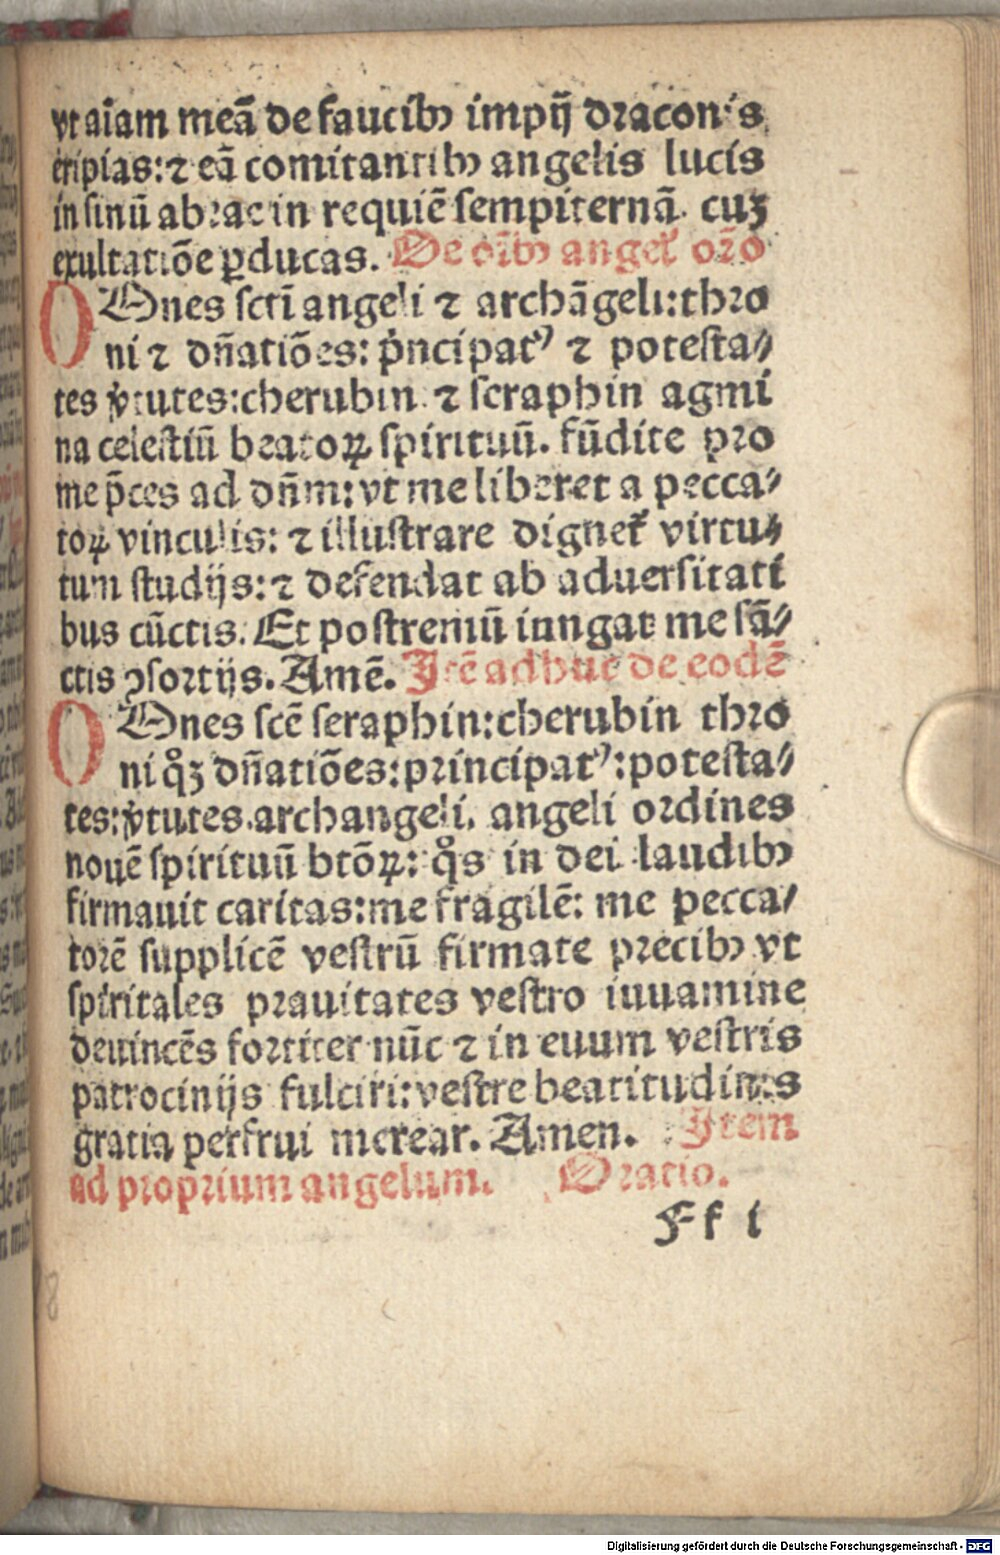 vt aīam meā de faucibꝰ impij draconis
eripias: ⁊ eā comitantibꝰ angelis lucis
in sinū abrae in requiē sempiternā. cuꝫ
exultatiōe ꝑducas. De oībꝰ angel' oro
OOnes scti angeli ⁊ archāgeli: thro
ni ⁊ dn̄atiōes: p̄ncipatꝰ ⁊ potesta-
tes v̓tutes: cherubin ⁊ seraphin agmi
na celestiū beatoꝝ spirituū. fūdite pro
me p̄ces ad dn̄m: vt me liberet a pecca-
toꝝ vinculis: ⁊ illustrare dignet' virtu-
tum studijs: ⁊ defendat ab aduersitati
bus cūctis. Et postremū iungat me sā-
ctis ꝯsortijs. Amē. Itē adhuc de eodē
OOnes scē seraphin: cherubin thro
ni qꝫ dn̄atiōes: principatꝰ: potesta-
tes: v̓tutes. archangeli. angeli ordines
nouē spirituū btōꝝ: qͦs in dei laudibꝰ
firmauit caritas: me fragilē: me pecca-
torē supplicē vestrū firmate precibꝰ vt
spiritales prauitates vestro iuuamine
deuincēs fortiter nūc ⁊ in euum vestris
patrocinijs fulciri: vestre beatitudinis
gratia perfrui merear. Amen. Item
ad proprium angelum. Oratio.
Ff i
8
Digitalisierung gefördert durch die Deutsche Forschungsgemeinschaft - DFG